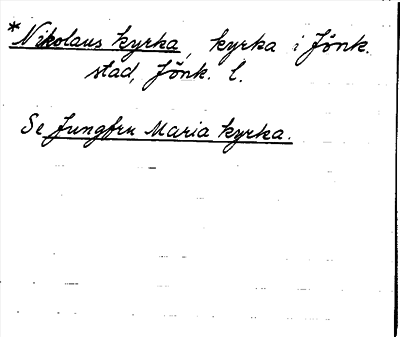 *Nikolaus kyrka, kyrka i Jönk.
stad, Jönk. l.
Se Jungfru Maria kyrka.